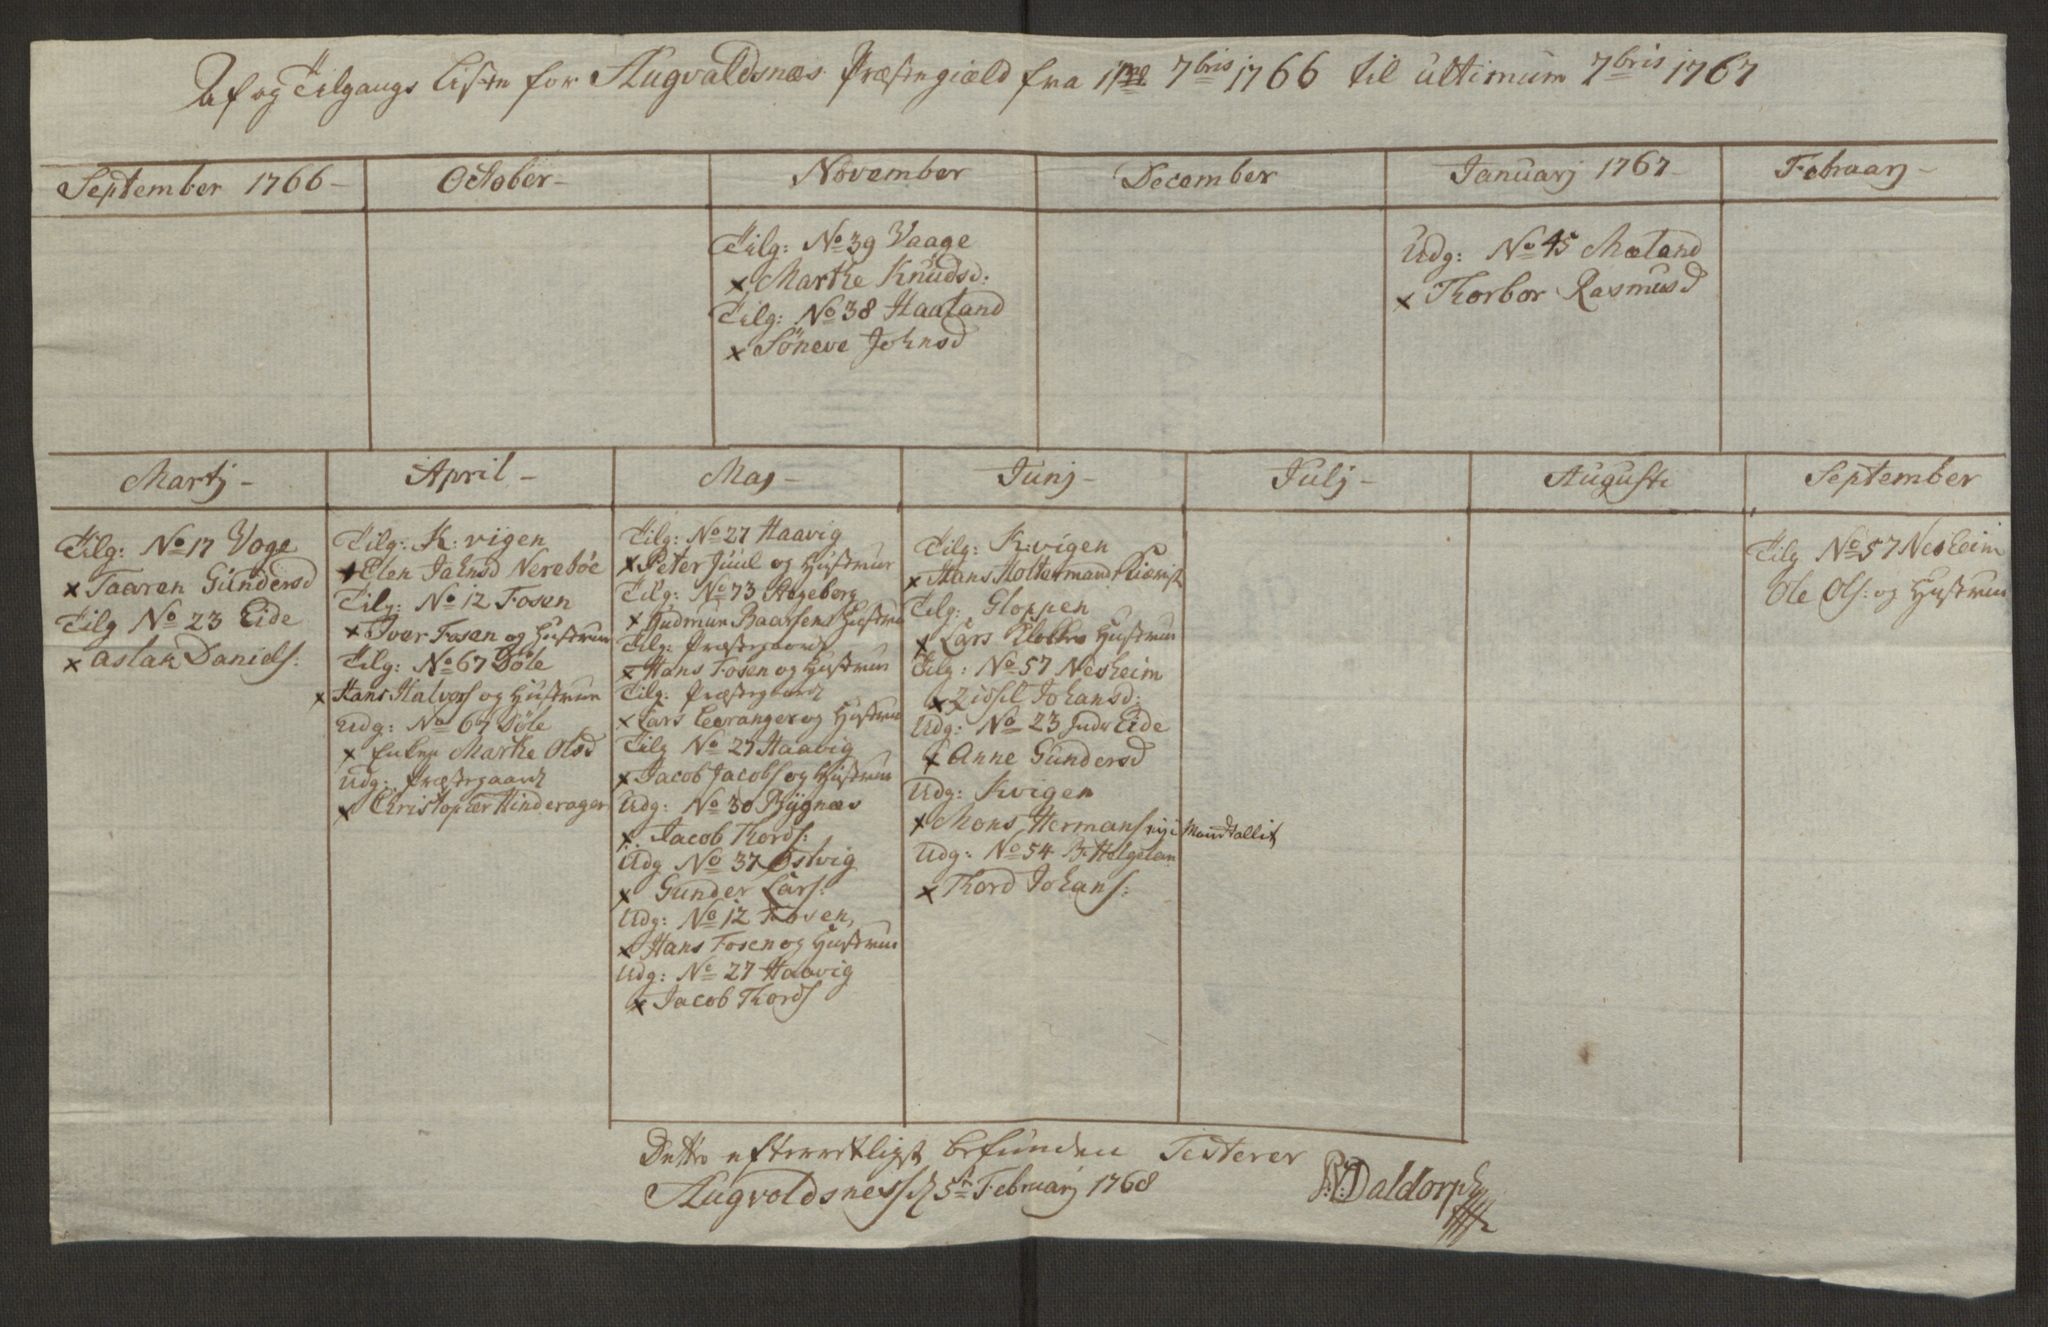 Af og Tilgangs Liste for Augvaldsnæs Præstegiæld fra 1me 7bris 1766 til ultimum 7bris 1767
September 1766 -
October -
November
December
Januarj 1767 -
Februarj -
Tilg: No 39 Vaage
x Marthe Knudsd:
Tilg: No 38 Haaland
x Söneve Johnsd
Udg: No 45 Mæland
x Thorbor Rasmusd
Martj -
April -
Maj -
Junj -
Julj -
Augusti
September
Tilg: No 17 Voge
x Taaren Gundersd
Tilg No 23 Eide
x Aslak Daniels:
Tilg: K: vigen
x Elen Jahnsd Nereböe
Tilg: No 12 Fosen
x Iver Fosen og Hustrue
Tilg: No 67 Döle
x Hans Halvors og Hustrue
Udg: No 67 Döle
x Enken Marthe Olsd
Udg: Præstegaard
x Christopher Hinderager
Tilg: No 27 Haavig
x Peter Juul og Hustrue
Tilg: No 73 Stegeborg
x Gudmun Baarsens Hustru
Tilg: Præstegaard
x Hans Fosen og Hustrue
Tilg: Præstegaard
x Lars Leeranger og Hustrue
Tilg No 27 Haavig
x Jacob Jacobs og Hustrue
Udg: No 30 Bygnæs
x Jacob Thords:
Udg No 37 Östvig
x Gunder Lars:
Udg: No 12 Fosen,
x Hans Fosen og Hustrue
Udg: No 27 Haavig
x Jacob Thords
Tilg: K: vigen
x Hans Holtermand
Tilg: Gloppen
x Lars Hustrue
Tilg: No 57 Nesheim
x Zidsel Johansd:
Udg: No 23 Indr Eide
x Anne Gundersd
Udg: Kvigen
x Mons Hermans ny i Mandtallit
Udg: No 54 Helgelan
x Thord Johans:
Tilg No 57 Nesheim
Ole Ols: og Hustrue
Dette efterretligst befunden Testerer
Augvoldsness d 5te Februarj 1768
P: V: Daldorph